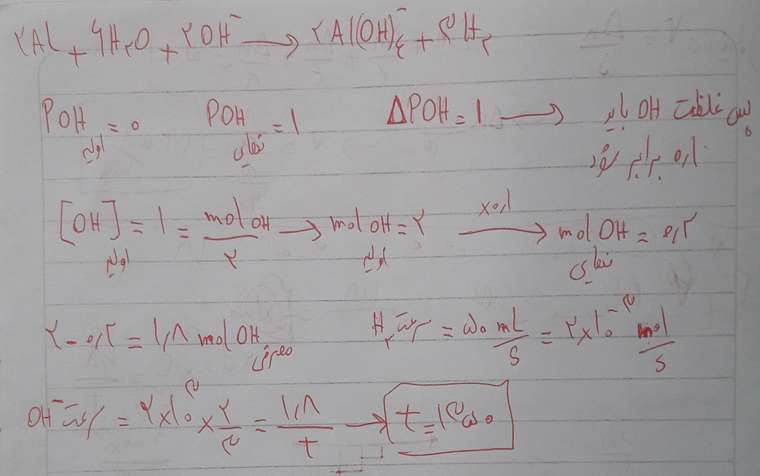 ۲Al + ۶H₂O + ۲OH⁻ → ۲Al(OH)₄⁻ + ۳H₂
POH اولیه = ۰ POH نهایی = ۱ ΔPOH = ۱ → پس غلظت OH باید ۰٫۱ برابر شود
[OH] اولیه = ۱ = mol OH / ۲ → mol OH اولیه = ۲ —×۰٫۱→ mol OH نهایی = ۰٫۲
۲ - ۰٫۲ = ۱٫۸ mol OH مصرفی سرعت H₂ = ۵۰ mL/s = ۲×۱۰⁻³ mol/s
سرعت OH⁻ = ۲×۱۰⁻³ × ۲/۳ = ۱٫۸/t → t = ۱۳۵۰